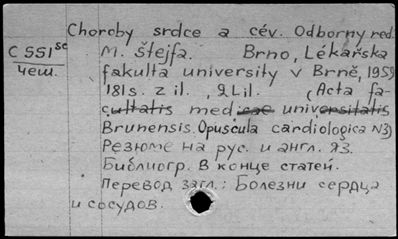 Choroby srdce a cév. Odborny red.
C 551 sc M. Štejfa. Brno, Lékářska
чеш. fakulta university v Brně, 1959
181 s. z il., 2 l. il. (Acta fa-
cultatis medicae universitatis
Brunensis. Opuscula cardiologica N3)
Резюме на рус. и англ. яз.
Библиогр. в конце статей.
Перевод загл.: Болезни сердца
и сосудов.